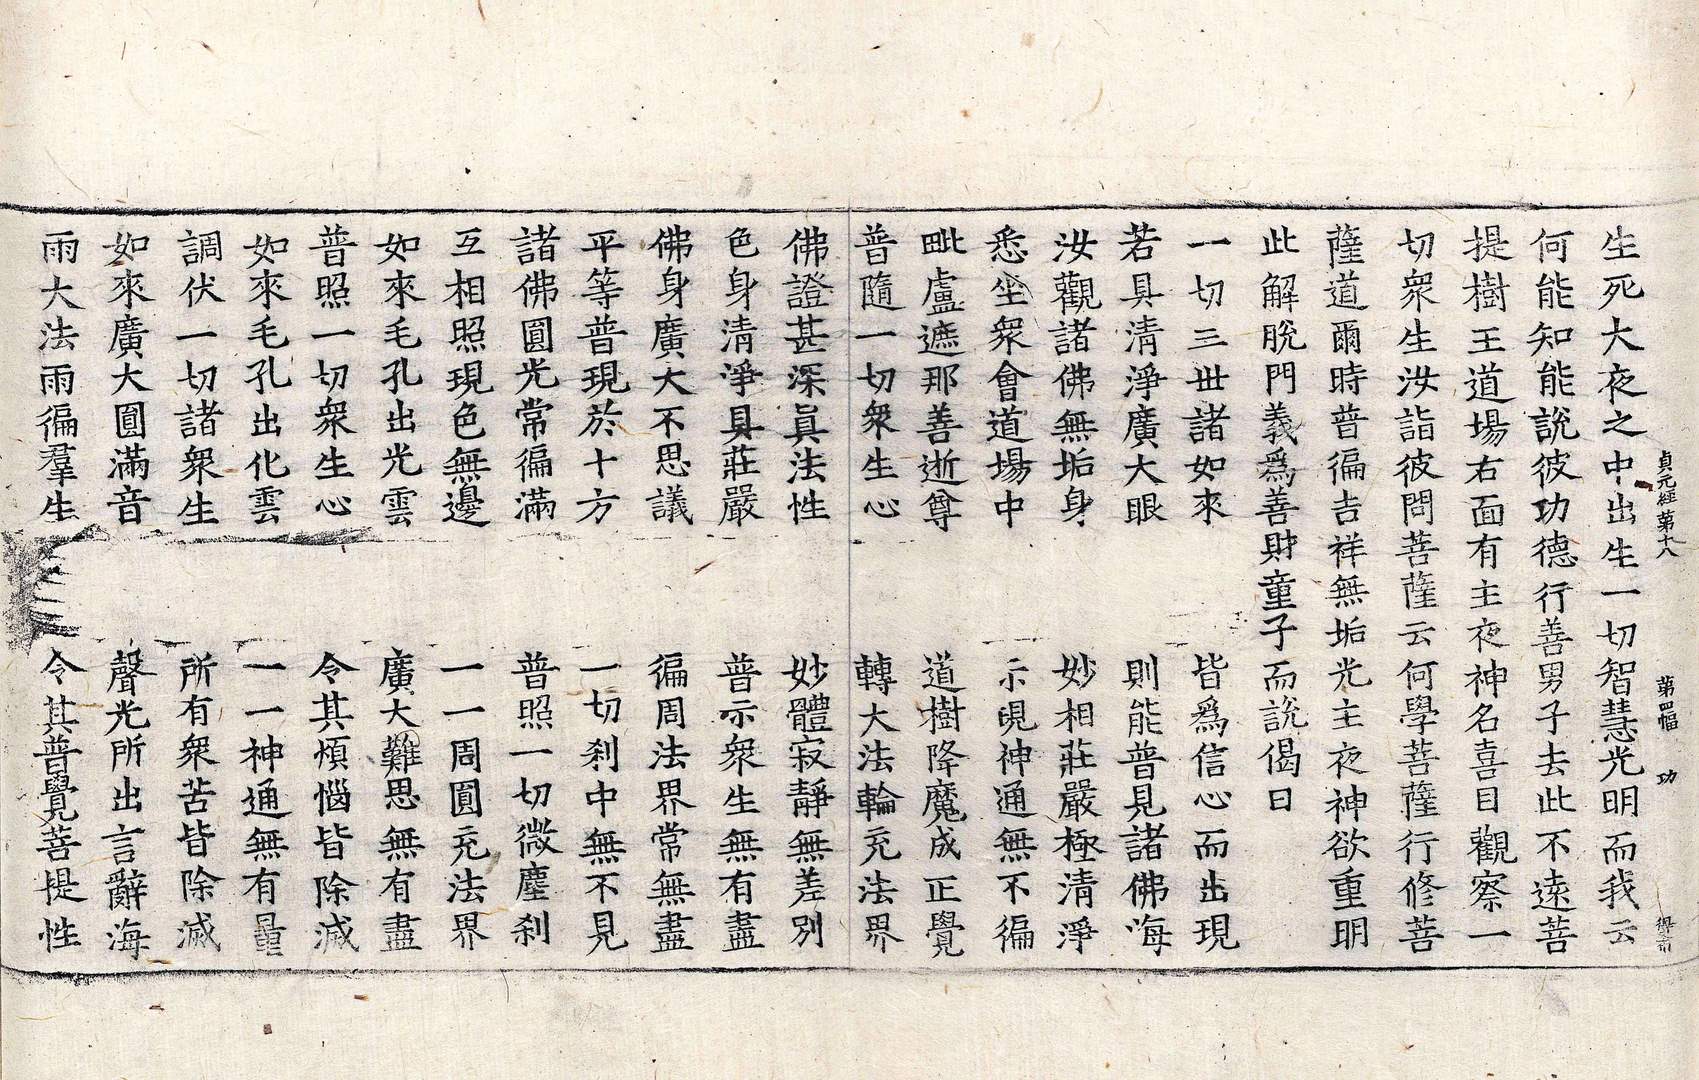 貞元經第十八 第四幅 功
生死大夜之中出生一切智慧光明而我云
何能知能說彼功德行善男子去此不遠菩
提樹王道場右面有主夜神名喜目觀察一
切衆生汝詣彼問菩薩云何學菩薩行修菩
薩道爾時普徧吉祥無垢光主夜神欲重明
此解脫門義爲善財童子而說偈曰
一切三世諸如來 皆爲信心而出現
若具清淨廣大眼 則能普見諸佛海
汝觀諸佛無垢身 妙相莊嚴極清淨
悉坐衆會道場中 示現神通無不徧
毗盧遮那善逝尊 道樹降魔成正覺
普隨一切衆生心 轉大法輪充法界
佛證甚深眞法性 妙體寂靜無差別
色身清淨具莊嚴 普示衆生無有盡
佛身廣大不思議 徧周法界常無盡
平等普現於十方 一切刹中無不見
諸佛圓光常徧滿 普照一切微塵刹
互相照現色無邊 一一周圓充法界
如來毛孔出光雲 廣大難思無有盡
普照一切衆生心 令其煩惱皆除滅
如來毛孔出化雲 一一神通無有量
調伏一切諸衆生 所有衆苦皆除滅
如來廣大圓滿音 聲光所出言辭海
雨大法雨徧羣生 令其普覺菩提性